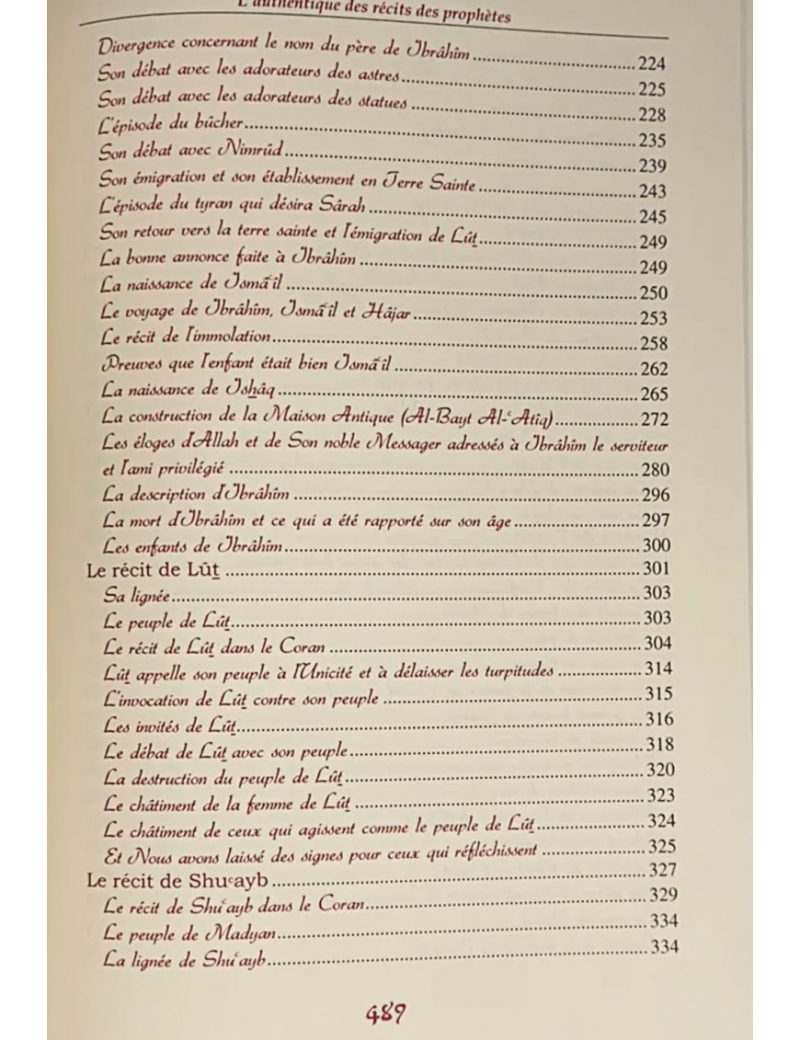 L'authentique des récits des prophètes
Divergence concernant le nom du père de Ibrâhîm ........ 224
Son débat avec les adorateurs des astres ........ 225
Son débat avec les adorateurs des statues ........ 228
L'épisode du bûcher ........ 235
Son débat avec Nimrûd ........ 239
Son émigration et son établissement en Terre Sainte ........ 243
L'épisode du tyran qui désira Sârah ........ 245
Son retour vers la terre sainte et l'émigration de Lûṯ ........ 249
La bonne annonce faite à Ibrâhîm ........ 249
La naissance de Ismâʿîl ........ 250
Le voyage de Ibrâhîm, Ismâʿîl et Hâjar ........ 253
Le récit de l'immolation ........ 258
Preuves que l'enfant était bien Ismâʿîl ........ 262
La naissance de Isẖâq ........ 265
La construction de la Maison Antique (Al-Bayt Al-ʿAtîq) ........ 272
Les éloges d'Allah et de Son noble Messager adressés à Ibrâhîm le serviteur
et l'ami privilégié ........ 280
La description d'Ibrâhîm ........ 296
La mort d'Ibrâhîm et ce qui a été rapporté sur son âge ........ 297
Les enfants de Ibrâhîm ........ 300
Le récit de Lûṯ ........ 301
Sa lignée ........ 303
Le peuple de Lûṯ ........ 303
Le récit de Lûṯ dans le Coran ........ 304
Lûṯ appelle son peuple à l'Unicité et à délaisser les turpitudes ........ 314
L'invocation de Lûṯ contre son peuple ........ 315
Les invités de Lûṯ ........ 316
Le débat de Lûṯ avec son peuple ........ 318
La destruction du peuple de Lûṯ ........ 320
Le châtiment de la femme de Lûṯ ........ 323
Le châtiment de ceux qui agissent comme le peuple de Lûṯ ........ 324
Et Nous avons laissé des signes pour ceux qui réfléchissent ........ 325
Le récit de Shuʿayb ........ 327
Le récit de Shuʿayb dans le Coran ........ 329
Le peuple de Madyan ........ 334
La lignée de Shuʿayb ........ 334
489